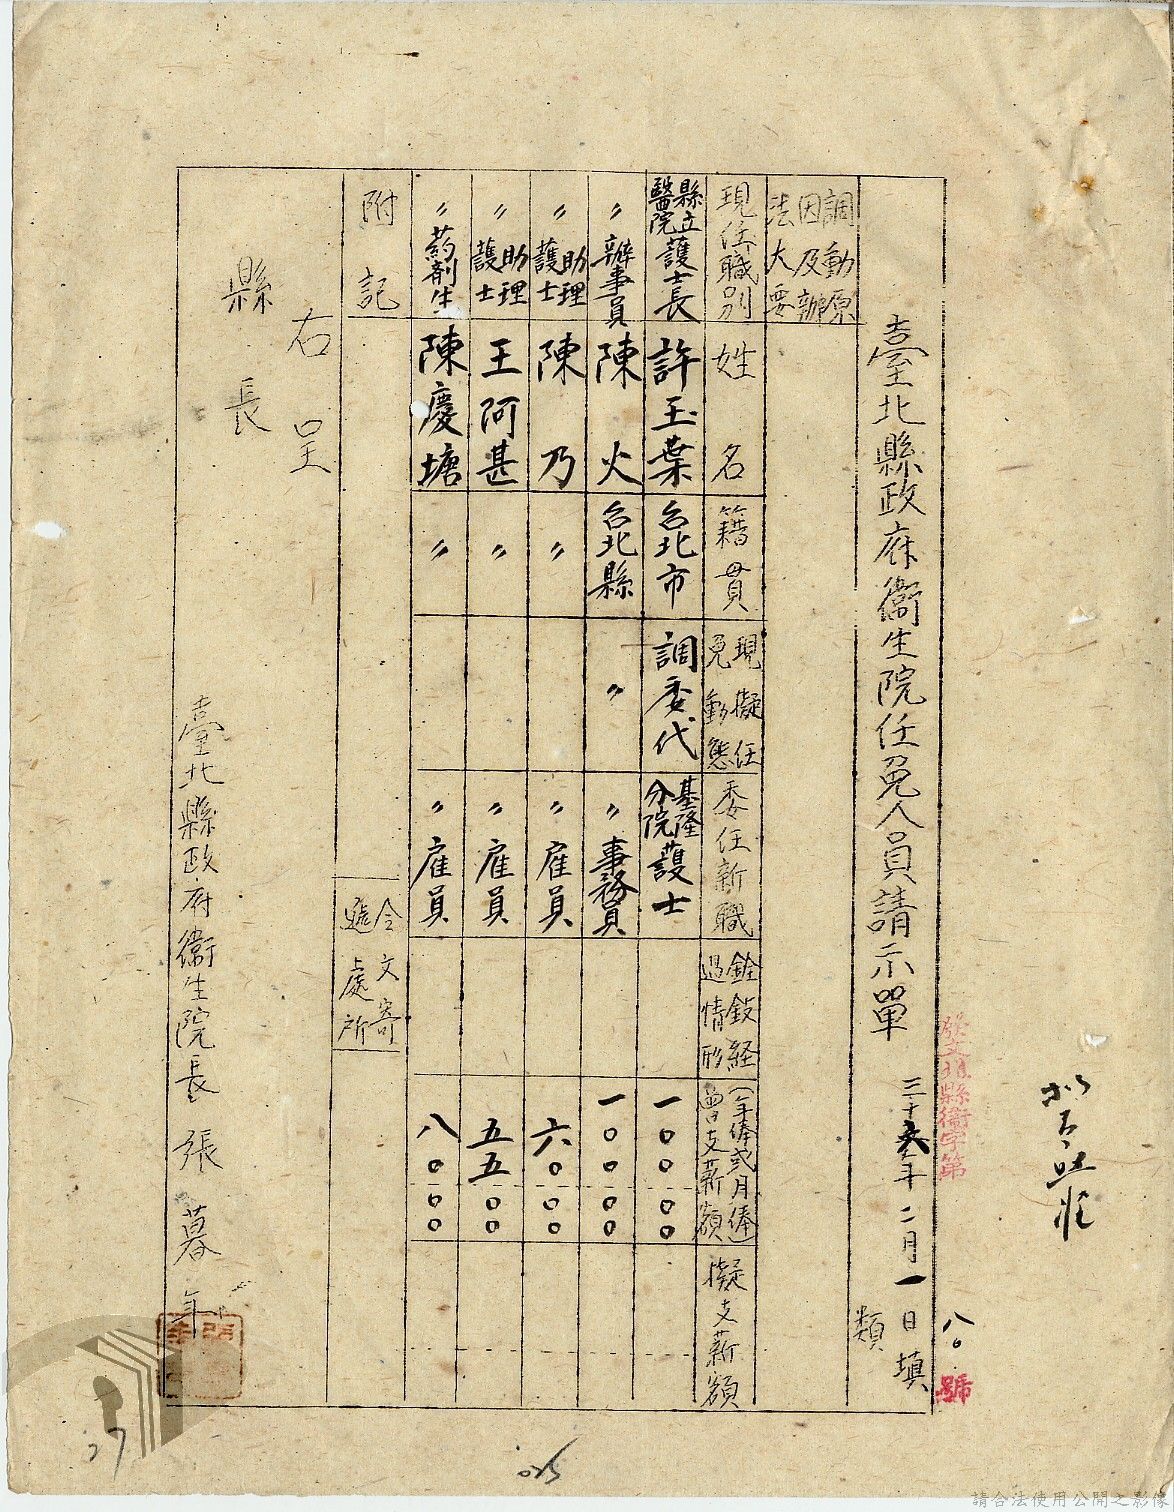 臺北縣政府衛生院任免人員請示單 三十六年二月一日填
發文北縣衛字第 八〇 號
類
調動原因及辦法大要
現任職別 姓名 籍貫 現擬任免動態 委任新職 銓敍經過情形 (年俸或月俸)曾支薪額 擬支薪額
縣立醫院護士長 許玉葉 台北市 調委代 基隆分院護士 一〇〇〇〇
〃辦事員 陳火 台北縣 〃 〃事務員 一〇〇〇〇
〃助理護士 陳乃 〃 〃雇員 六〇〇〇
〃助理護士 王阿甚 〃 〃雇員 五五〇〇
〃葯剤生 陳慶塘 〃 〃雇員 八〇〇〇
附記 令文寄遞處所
右呈
縣長
臺北縣政府衛生院長 張暮年
27
請合法使用公開之影像